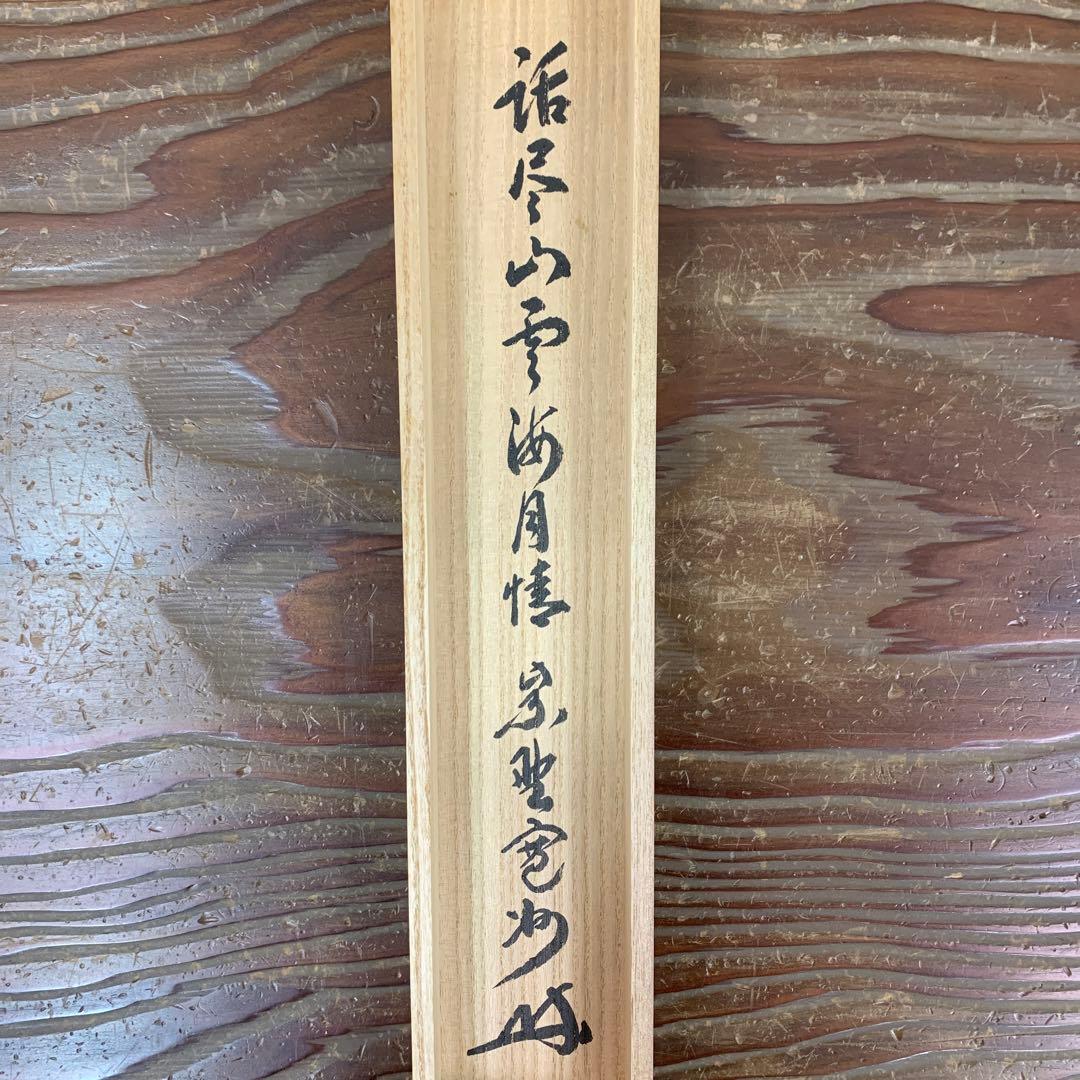 話尽山雲海月情 紫野寛州